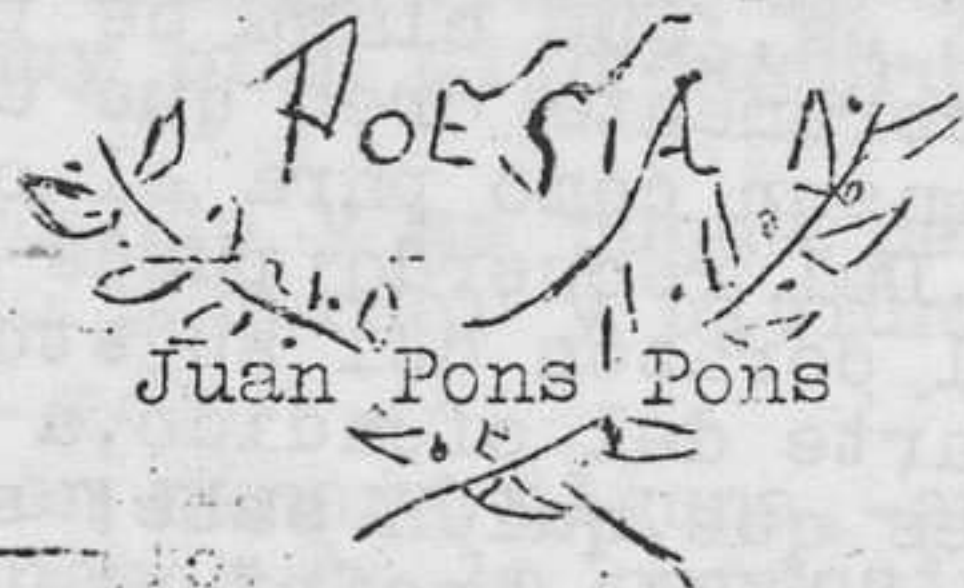 POESIA
Juan Pons Pons